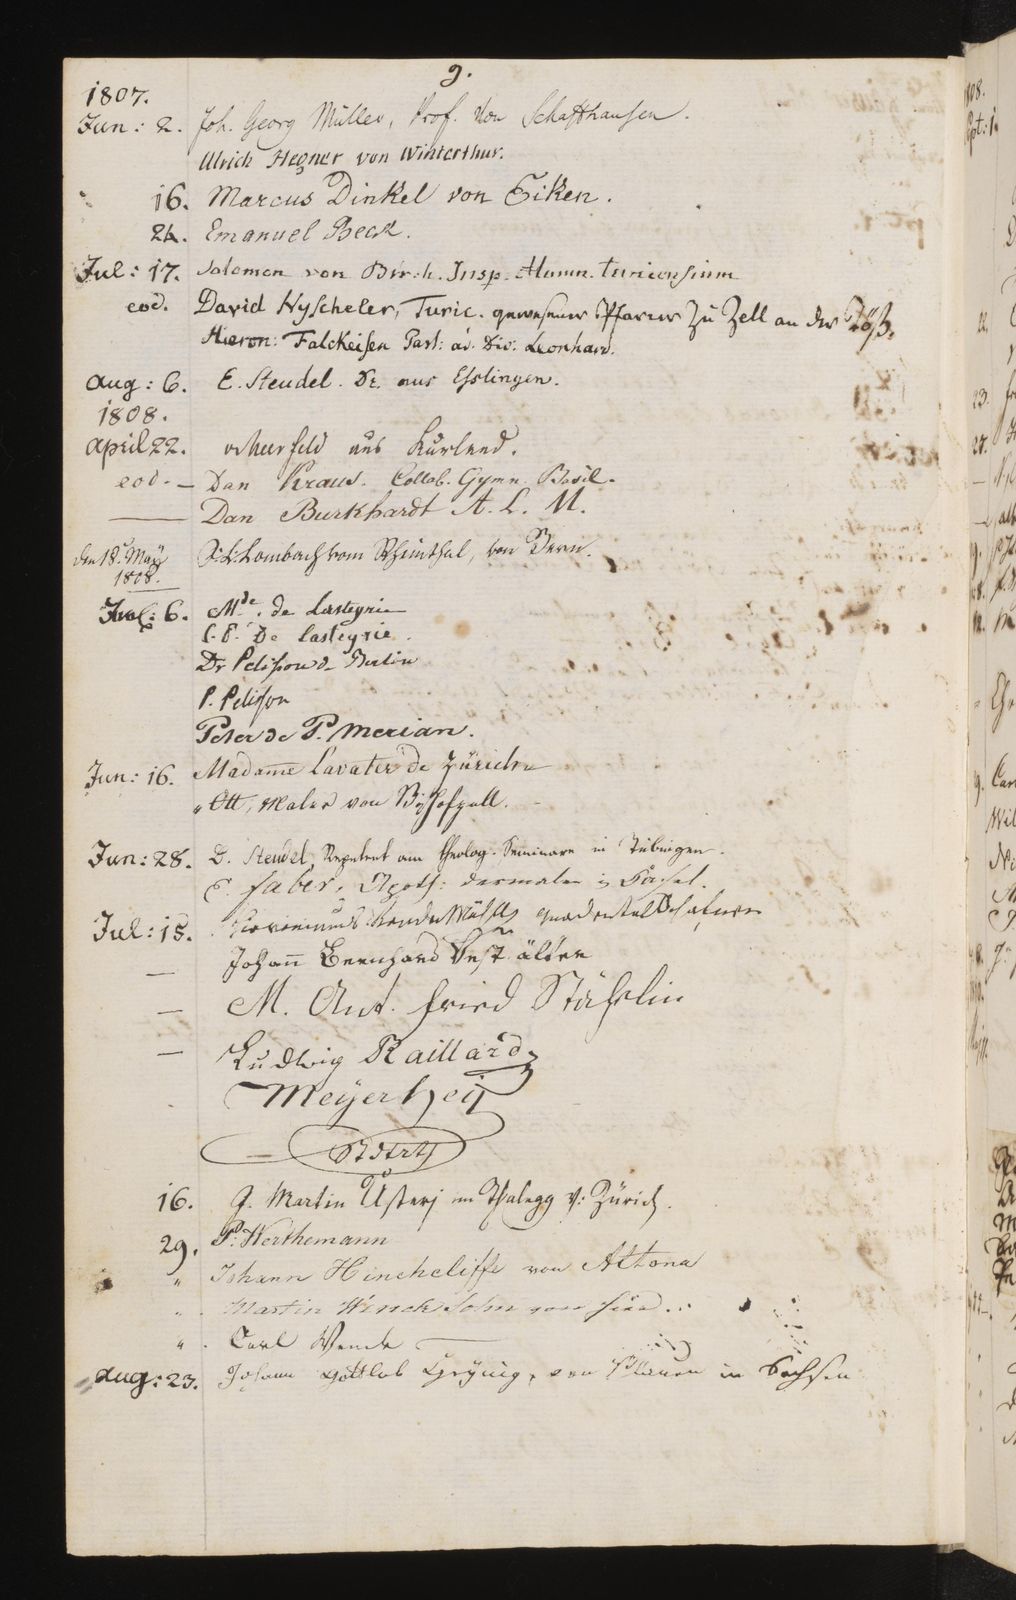 9.
1807.
Jun: 2. Joh. Georg Müller, Prof. von Schaffhausen.
Ulrich Hegner von Winterthur.
16. Marcus Dinkel von Eiken.
24. Emanuel Beck.
Jul: 17. Salomon von Birch. Insp. Alumn. Turicensium
eod. David Nyscheler, Turic. gewesener Pfarrer zu Zell an der Töß.
Hieron: Falckeisen Past: ad. Div. Leonhard.
Aug: 6. E. Steudel. Dr. aus Esslingen.
1808.
April 22. aus Kurland.
eod. – Dan Kraus. Collab. Gymn. Basil.
Dan Burkhardt A. L. M.
den 18. May Lombach vom von Bern.
1808.
Jul: 6. Mde. de Lasteyrie
C. P. De Lasteyrie.
Dr Pelisson de Berlin
P. Pelisson
Peter de P. Merian.
Jun: 16. Madame Lavater de Zürich
" Ott, Maler von Bischofzell.
Jun: 28. D. Steudel, Repetent am theolog. Seminare in Tübingen.
C. Faber, Apoth: dermalen in Basel.
Jul: 15.
– Johann Bernhard älter
– M. Ant. Fried Stähelin
– Ludwig Raillard
Meyer
16. J. Martin Usterj im Thalegg v: Zürich.
29. P. Werthemann
" Johann Hinchcliffe von Altona
" Martin Wenck Sohn von hier.
" Carl Wenck
Aug: 23. Johann Gottlob von Plauen in Sachsen